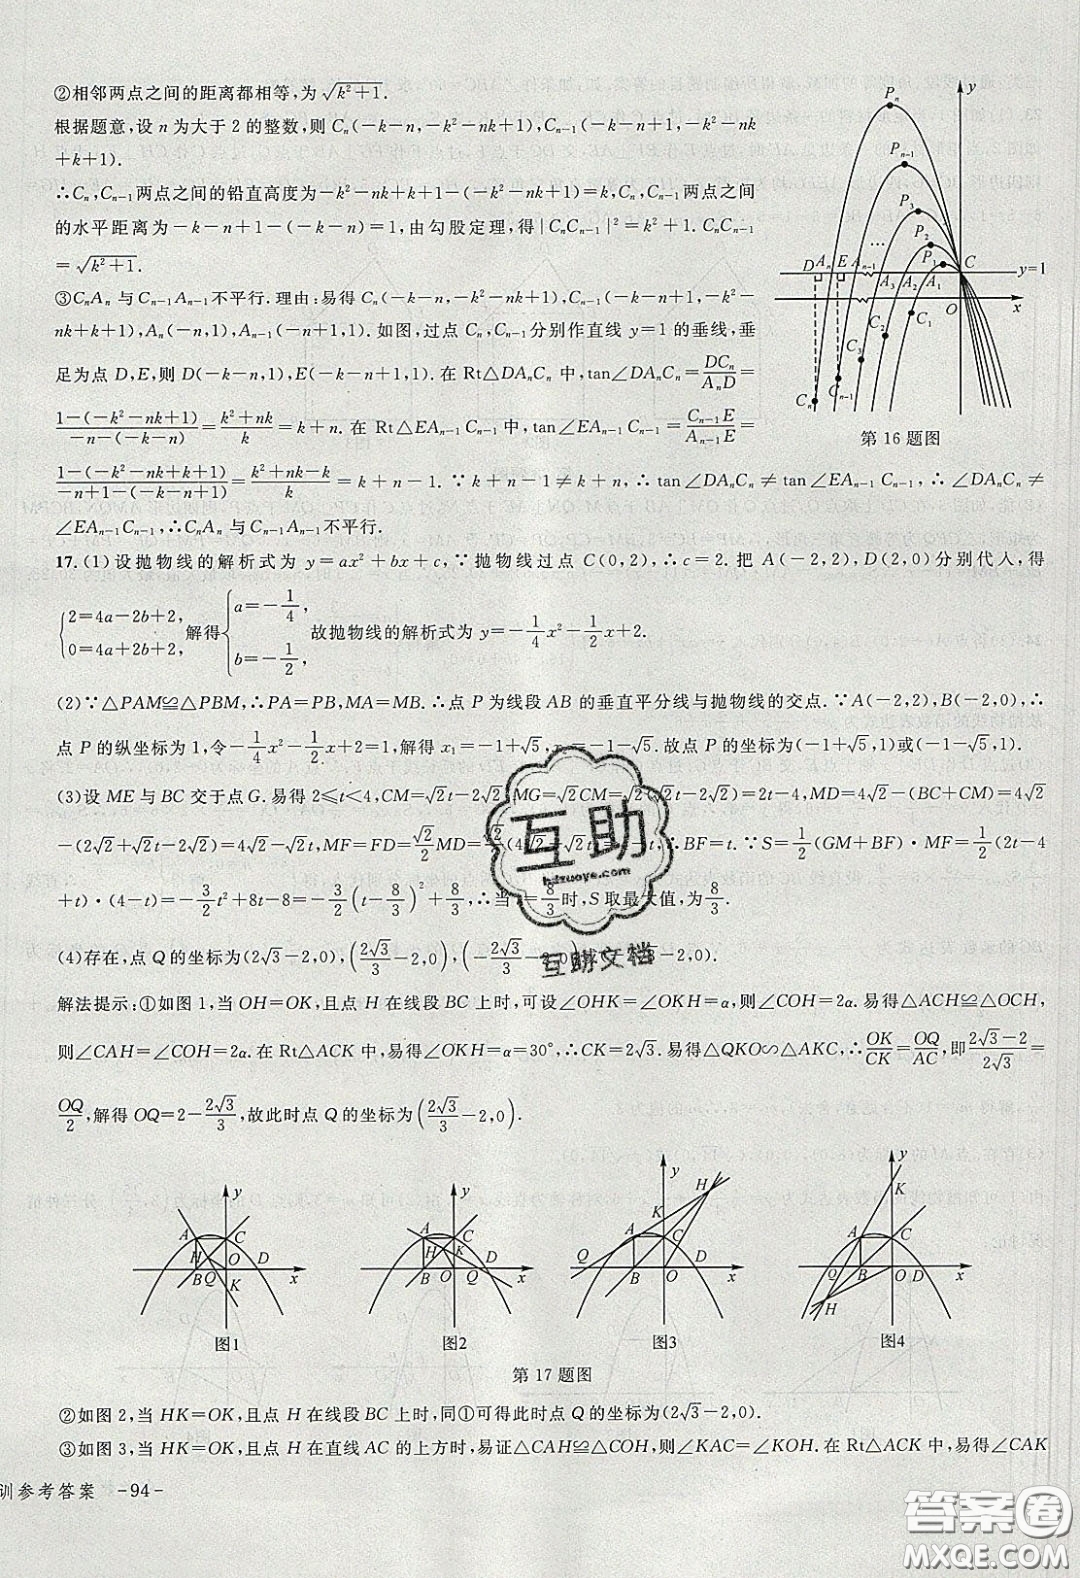 ②相邻两点之间的距离都相等,为√(k²+1).
根据题意,设 n 为大于 2 的整数,则 Cₙ(-k-n,-k²-nk+1),Cₙ₋₁(-k-n+1,-k²-nk
+k+1).
∴Cₙ,Cₙ₋₁两点之间的铅直高度为-k²-nk+k+1-(-k²-nk+1)=k,Cₙ,Cₙ₋₁两点之间
的水平距离为-k-n+1-(-k-n)=1,由勾股定理,得|CₙCₙ₋₁|²=k²+1.CₙCₙ₋₁
=√(k²+1).
③CₙAₙ 与 Cₙ₋₁Aₙ₋₁不平行.理由:易得 Cₙ(-k-n,-k²-nk+1),Cₙ₋₁(-k-n+1,-k²-
nk+k+1),Aₙ(-n,1),Aₙ₋₁(-n+1,1).如图,过点 Cₙ,Cₙ₋₁分别作直线 y=1 的垂线,垂
足为点 D,E,则 D(-k-n,1),E(-k-n+1,1).在 Rt△DAₙCₙ 中,tan∠DAₙCₙ=DCₙ/AₙD=
(1-(-k²-nk+1))/(-n-(-k-n))=(k²+nk)/k=k+n.在 Rt△EAₙ₋₁Cₙ₋₁中,tan∠EAₙ₋₁Cₙ₋₁=Cₙ₋₁E/Aₙ₋₁E=
(1-(-k²-nk+k+1))/(-n+1-(-k-n+1))=(k²+nk-k)/k=k+n-1.∵k+n-1≠k+n,∴tan∠DAₙCₙ≠tan∠EAₙ₋₁Cₙ₋₁,∴∠DAₙCₙ≠
∠EAₙ₋₁Cₙ₋₁,∴CₙAₙ 与 Cₙ₋₁Aₙ₋₁不平行.
Pₙ
Pₙ₋₁
P₃
P₂
P₁
…
D Aₙ E Aₙ₋₁
A₃ A₂ A₁
C
y
y=1
O
x
C₁
C₂
C₃
Cₙ₋₁
Cₙ
第 16 题图
17.(1)设抛物线的解析式为 y=ax²+bx+c,∵抛物线过点 C(0,2),∴c=2.把 A(-2,2),D(2,0)分别代人,得
{2=4a-2b+2,0=4a+2b+2,解得{a=-1/4,b=-1/2,故抛物线的解析式为 y=-1/4x²-1/2x+2.
(2)∵△PAM≌△PBM,∴PA=PB,MA=MB.∴点 P 为线段 AB 的垂直平分线与抛物线的交点.∵A(-2,2),B(-2,0),∴
点 P 的纵坐标为 1,令-1/4x²-1/2x+2=1,解得 x₁=-1+√5,x₂=-1-√5.故点 P 的坐标为(-1+√5,1)或(-1-√5,1).
(3)设 ME 与 BC 交于点 G.易得 2≤t<4,CM=√2t-2√2,MG=√2CM=√2(√2t-2√2)=2t-4,MD=4√2-(BC+CM)=4√2
-(2√2+√2t-2√2)=4√2-√2t,MF=FD=√2/2MD=√2/2(4√2-√2t)=4-t,∴BF=t.∵S=1/2(GM+BF)·MF=1/2(2t-4
+t)·(4-t)=-3/2t²+8t-8=-3/2(t-8/3)²+8/3,∴当 t=8/3时,S 取最大值,为8/3.
(4)存在,点 Q 的坐标为(2√3-2,0),(2√3/3-2,0),(-2√3/3-2,0),(-2√3-2,0).
解法提示:①如图 1,当 OH=OK,且点 H 在线段 BC 上时,可设∠OHK=∠OKH=α,则∠COH=2α.易得△ACH≌△OCH,
则∠CAH=∠COH=2α.在 Rt△ACK 中,易得∠OKH=α=30°,∴CK=2√3.易得△QKO∽△AKC,∴OK/CK=OQ/AC,即(2√3-2)/2√3=
OQ/2,解得 OQ=2-2√3/3,故此时点 Q 的坐标为(2√3/3-2,0).
A C y H O D B Q K x
图1
A C y H K O D B Q x
图2
y H K A C Q B O D x
图3
y K A C Q B O D H x
图4
第 17 题图
②如图 2,当 HK=OK,且点 H 在线段 BC 上时,同①可得此时点 Q 的坐标为(2√3-2,0).
③如图 3,当 HK=OK,且点 H 在直线 AC 的上方时,易证△CAH≌△COH,则∠KAC=∠KOH.在 Rt△ACK 中,易得∠CAK
训参考答案 -94-
互助
hdzuoye.com
互助文档
答案圈
MXQE.COM